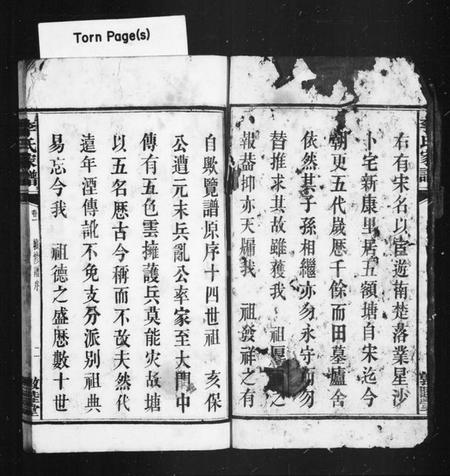 Torn Page(s)
李氏家譜
右有宋名以宦遊南楚落業星沙
卜宅新康里居五領塘自宋迄今
朝更五代歲歷千餘而田墓廬舍
依然其子孫相繼亦勿永守而勿
替推求其故雖獲我 祖厚 之
報益抑亦天賜我 祖發祥之有
敦睦堂
自歟覽譜原序十四世祖 亥保
公遭元末兵亂公率家至大門中
傳有五色雲擁護兵莫能災故塘
以五名歷古今稱而不改夫然代
遠年湮傳訛不免支分派別祖典
易忘今我 祖德之盛歷數十世
李氏家譜
卷一
序
二
敦睦堂